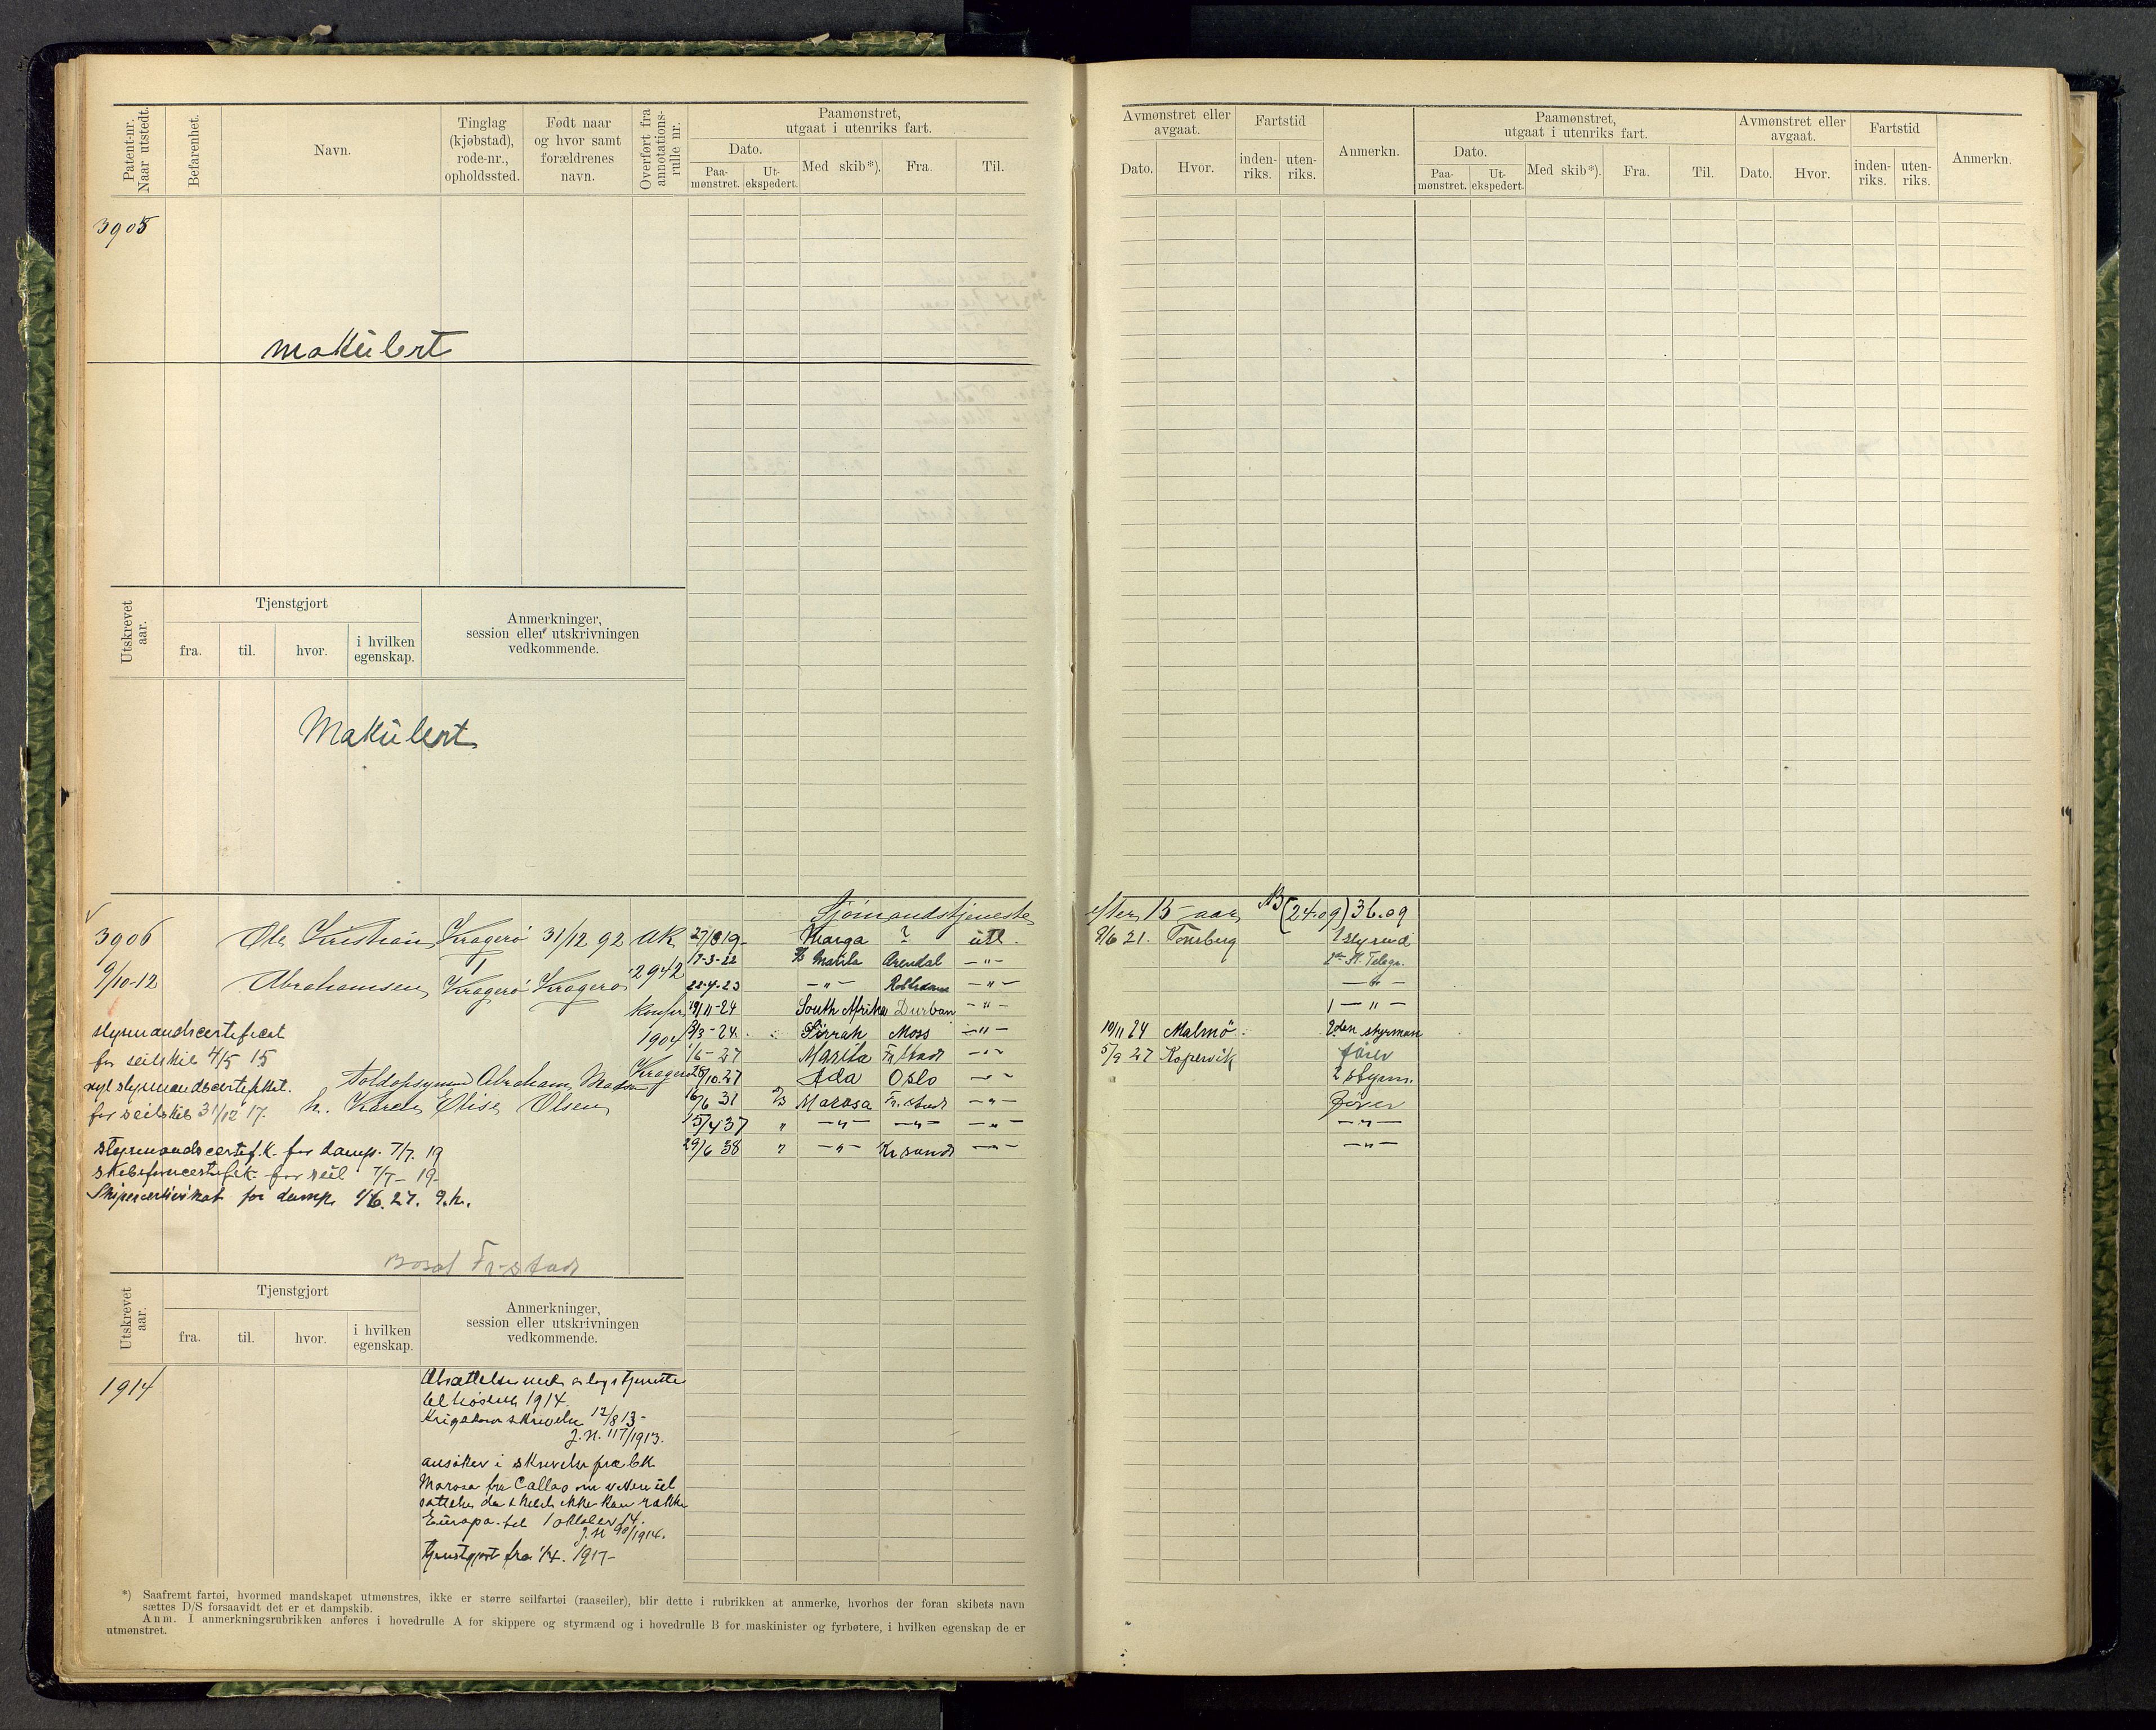 Patent-nr. Naar utstedt.
Befarenhet.
Navn.
Tinglag (kjøbstad), rode-nr., opholdssted.
Født naar og hvor samt forældrenes navn.
Overført fra annotations-rulle nr.
Paamønstret, utgaat i utenriks fart.
Dato.
Paa-mønstret.
Ut-ekspedert.
Med skib*).
Fra.
Til.
Avmønstret eller avgaat.
Dato.
Hvor.
Fartstid
inden-riks.
uten-riks.
Anmerkn.
Paamønstret, utgaat i utenriks fart.
Dato.
Paa-mønstret.
Ut-ekspedert.
Med skib*).
Fra.
Til.
Avmønstret eller avgaat.
Dato.
Hvor.
Fartstid
inden-riks.
uten-riks.
Anmerkn.
3905
Makulert
Utskrevet aar.
Tjenstgjort
fra.
til.
hvor.
i hvilken egenskap.
Anmerkninger, session eller utskrivningen vedkommende.
Makulert
Sjømandstjeneste efter 15 aar (24.09) 36.09
3906 Ole Kristian Kragerø 31/12 92 AK
9/10-12 Abrahamsen Kragerø Kragerø 2942
1904
Kragerø
27/8 19 Marga ? utl. 9/6 21. Tønsberg 1 styrmd
17-3-22 Marita Arendal -"- Telegr.
22-4-23 -"- -"- -"-
11-24 South Afrika Durban -"- 1 -"-
-24 Sirrah Moss -"- 10/11 24 Malmö 2den styrman
1/6-27 Marita Fr.stad -"- 5/9 27 Kopervik fører
25/10.27 Ada Oslo -"- 2 styrm.
16/6 31 Marosa Fr.stad -"- Fører
15/4 37 " -"- -"- -"- -"-
29/6 38 " -"- Kr sund -"- -"-
styrmandscertificat
for seilskib 4/5 15
nyt styrmandscertifikat.
for seilskib 31/12 17.
Toldopsynsm Abraham Madsen
h. Karen Elise Olsen
styrmandscertifik. for damp. 7/7. 19
skibsførercertifik. for seil 7/7-19
Skipercertivikat for damp. 1/6.27. 9.h.
Bosat Fr-stad
Utskrevet aar.
Tjenstgjort
fra.
til.
hvor.
i hvilken egenskap.
Anmerkninger, session eller utskrivningen vedkommende.
1914
Utsættelse med
til høsten 1914.
skrivelse 12/8 13-
J.N. 117/1913.
ansøker i skrivelse fra bk
Marosa fra Callao om videre ut
sættelse da skibet ikke kan række
Europa til 1 oktober 14.
J.N 90/1914.
tjenstgjort fra 1/4. 1917-
*) Saafremt fartøi, hvormed mandskapet utmønstres, ikke er større seilfartøi (raaseiler), blir dette i rubrikken at anmerke, hvorhos der foran skibets navn
sættes D/S forsaavidt det er et dampskib.
Anm. I anmerkningsrubrikken anføres i hovedrulle A for skippere og styrmænd og i hovedrulle B for maskinister og fyrbøtere, i hvilken egenskap de er
utmønstret.